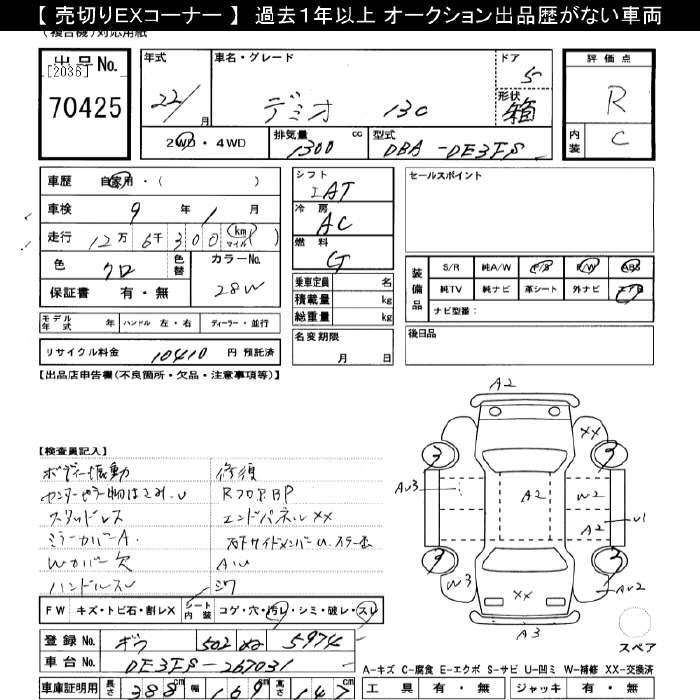 【 売切りEXコーナー 】 過去1年以上 オークション出品歴がない車両
(複合機)対応用紙
出品No.
[2036]
70425
年式 22/ 月
車名・グレード デミオ 130
ドア 5
形状 箱
2WD・4WD
排気量 1300 cc
型式 DBA-DE3FS
評価点 R
内装 C
車歴 自家用・( )
車検 9 年 1 月
走行 12万 6千 300 (km マイル)
色 クロ 色替 カラーNo. 28W
保証書 有・無
シフト IAT
冷房 AC
燃料 G
乗車定員 名
積載量 kg
総重量 kg
セールスポイント
装備品
S/R 純A/W P/S P/W ABS
純TV 純ナビ 革シート 外ナビ ETC
ナビ型番:
モデル年式 年 ハンドル 左・右 ディーラー・並行
名変期限 月 日
後日品
リサイクル料金 10410 円 預託済
【出品店申告欄(不良箇所・欠品・注意事項等)】
【検査員記入】
ボディー振動 修復
スタッドレス エンドパネルXX
ミラーカバーA
Wカバー欠 AU
ハンドルスレ シワ
FW キズ・トビ石・割レX シート内装 コゲ・穴・汚レ・シミ・破レ・スレ
登録No. ギフ 502 5974
車台No. DE3FS-267031
車庫証明用 長さ 388cm 幅 169cm 高さ 147cm
A2
XX
3 3
AU3
A2
W2
A2
U1
3 3
W3
AU2
XX
A3
スペア
A-キズ C-腐食 E-エクボ S-サビ U-凹ミ W-補修 XX-交換済
工具 有・無 ジャッキ 有・無